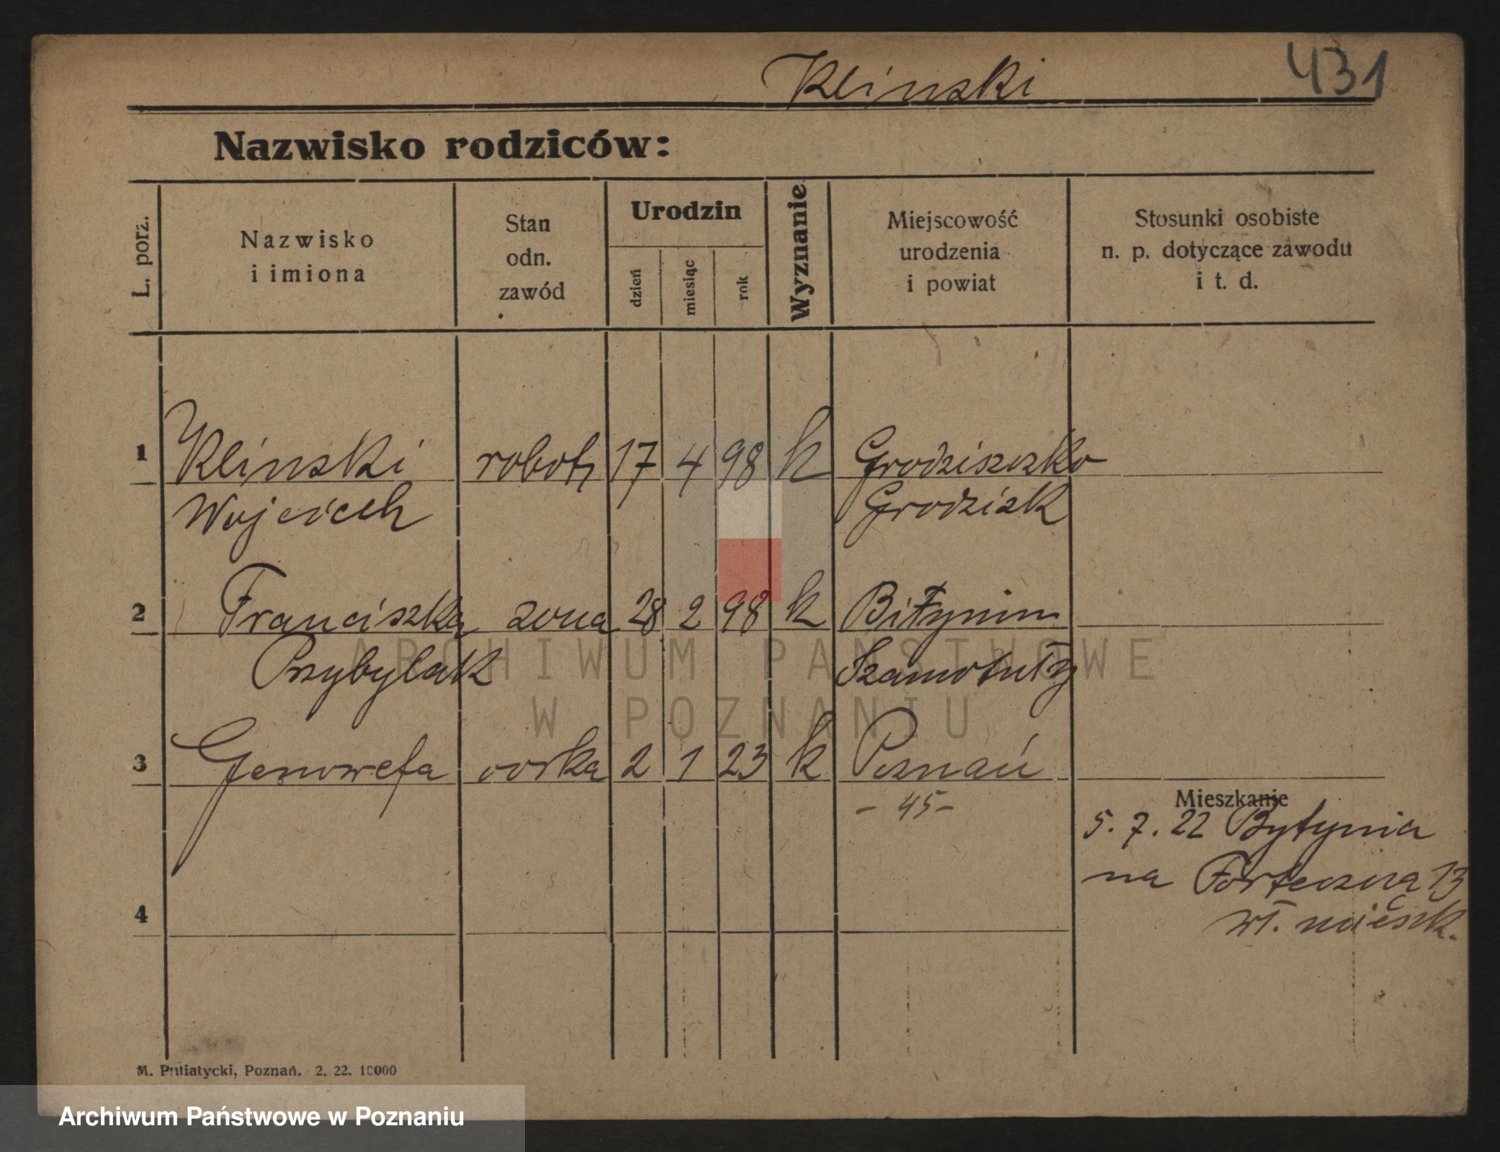 Klinski 431
Nazwisko rodziców:
L. porz.
Nazwisko
i imiona
Stan
odn.
zawód
Urodzin
dzień
miesiąc
rok
Wyznanie
Miejscowość
urodzenia
i powiat
Stosunki osobiste
n. p. dotyczące zawodu
i t. d.
1 Klinski robotn 17 4 98 k Grodziszczko
Wojciech Grodzisk
2 Franciszka zona 28 2 98 k Bitynim
Przybylak Szamotuły
3 Genowefa corka 2 1 23 k Poznań
- 45 -
Mieszkanie
5. 7. 22 Bytynia
na Forteczną 13
wł. mieszk.
4
M. Putiatycki, Poznań. 2. 22. 10000
ARCHIWUM PAŃSTWOWE
W POZNANIU
Archiwum Państwowe w Poznaniu